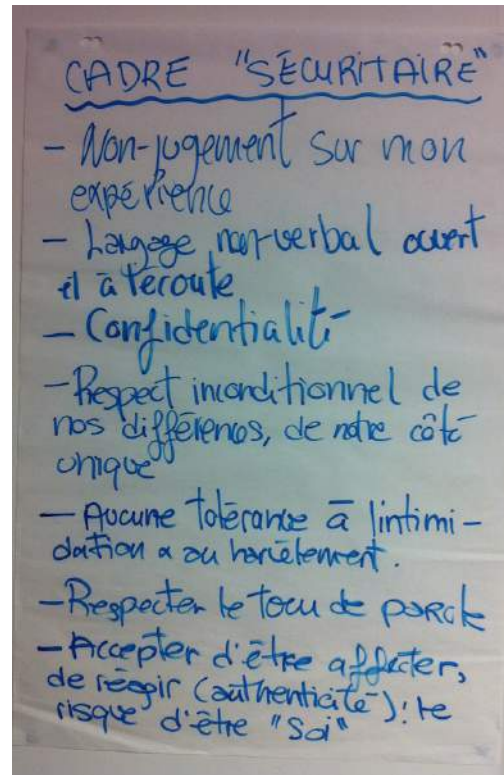 CADRE "SÉCURITAIRE"
- Non-jugement sur mon
expérience
- Langage non-verbal ouvert
et à l'écoute
- Confidentialité
- Respect inconditionnel de
nos différences, de notre côté
unique
- Aucune tolérance à l'intimi-
dation ou harcèlement.
- Respecter le tour de parole
- Accepter d'être affecter,
de réagir (authenticité): le
risque d'être "Soi"